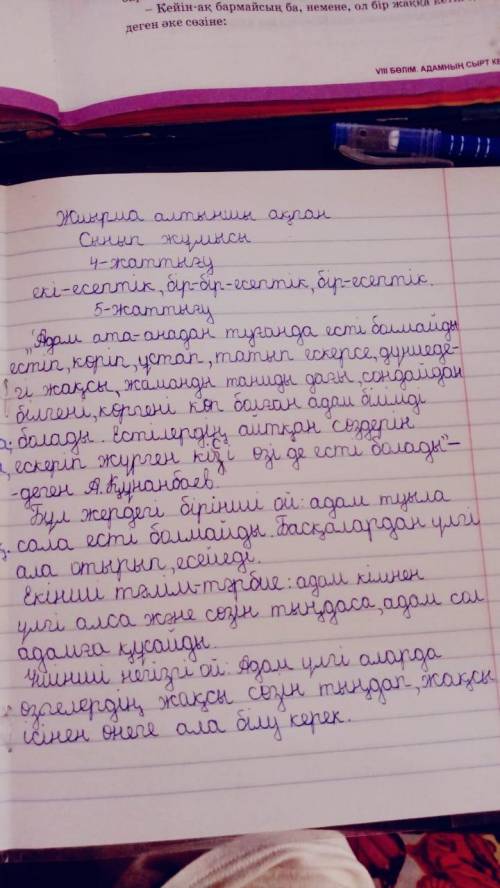 – Кейін-ақ бармайсың ба, немене, ол бір жаққа
деген әке сөзіне:
VIII БӨЛІМ. АДАМНЫҢ СЫРТ
Жиырма алтыншы ақпан
Сынып жұмысы
4-жаттығу
екі-есептік, бір-бір-есептік, бір-есептік.
5-жаттығу
"Адам ата-анадан туғанда есті болмайды
естіп, көріп, ұстап, татып ескерсе, дүниеде-
гі жақсы, жаманды таниды дағы, сондайдан
білгені, көргені көп болған адам білімді
болады. Естілердің айтқан сөздерін
ескеріп жүрген кісі өзі де есті болады" –
-деген А.Құнанбаев.
Бұл жердегі бірінші ой: адам туыла
сала есті болмайды. Басқалардан үлгі
ала отырып, есейеді.
Екінші тәлім-тәрбие: адам кімнен
үлгі алса және сөзін тыңдаса, адам сол
адамға құсайды.
Үшінші негізгі ой: Адам үлгі аларда
өзгелердің жақсы сөзін тыңдап, жақсы
ісінен өнеге ала білу керек.